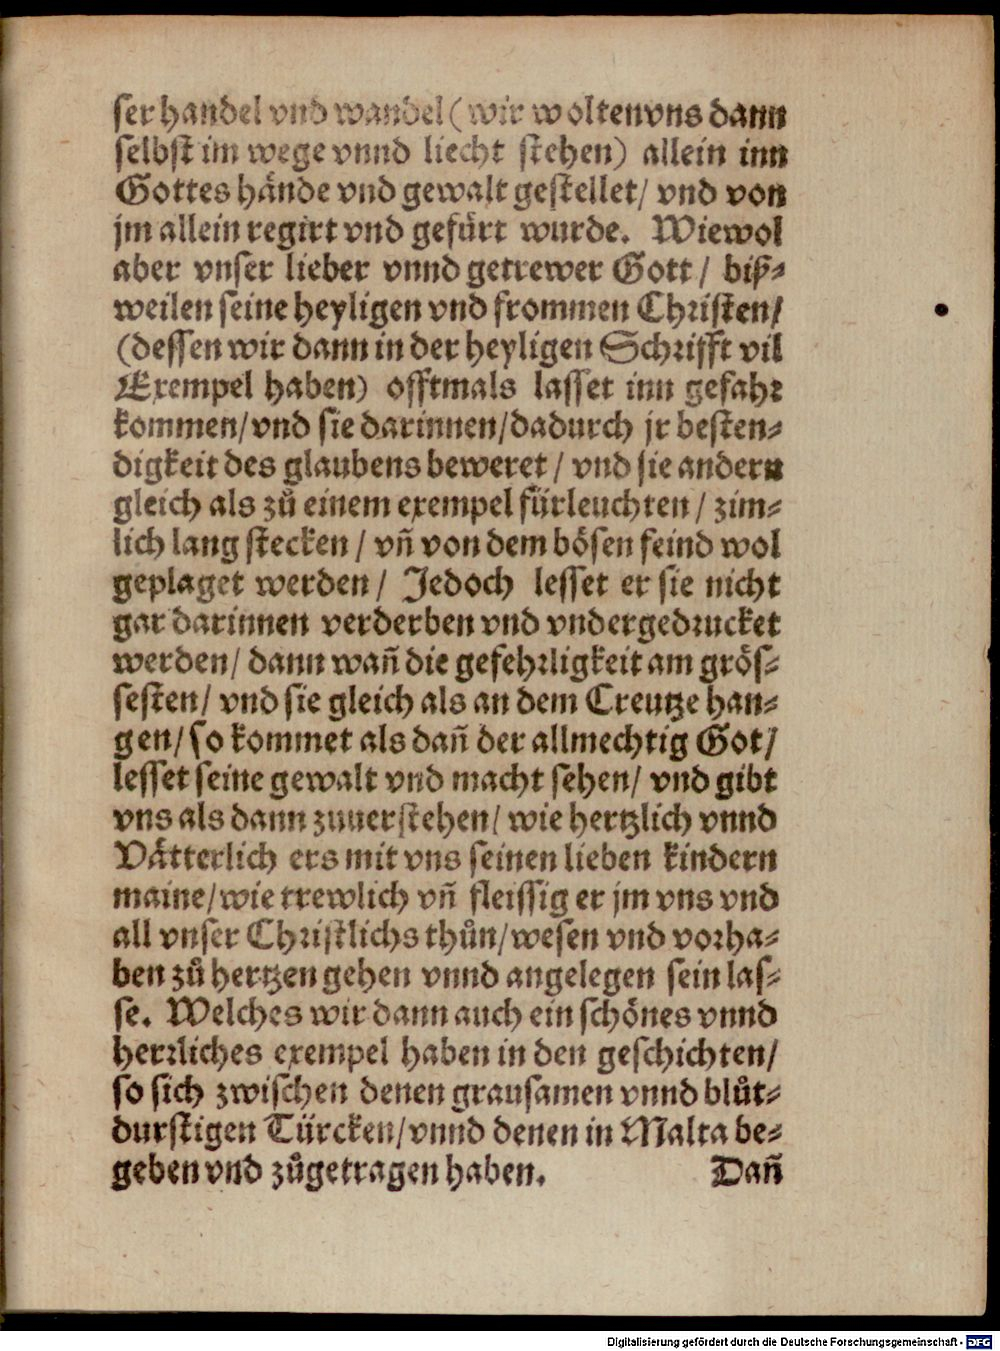 ser handel vnd wandel (wir wolten vns dann
selbst im wege vnnd liecht stehen) allein inn
Gottes hände vnd gewalt gestellet/ vnd von
jm allein regirt vnd gefürt wurde. Wiewol
aber vnser lieber vnnd getrewer Gott/ biß⸗
weilen seine heyligen vnd frommen Christen/
(dessen wir dann in der heyligen Schrifft vil
Exempel haben) offtmals lasset inn gefahr
kommen/ vnd sie darinnen/ dadurch jr besten⸗
digkeit des glaubens beweret/ vnd sie andern
gleich als zů einem exempel fürleuchten/ zim⸗
lich lang stecken/ vñ von dem bösen feind wol
geplaget werden/ Jedoch lesset er sie nicht
gar darinnen verderben vnd vndergedrucket
werden/ dann wañ die gefehrligkeit am grös⸗
sesten/ vnd sie gleich als an dem Creutze han⸗
gen/ so kommet als dañ der allmechtig Got/
lesset seine gewalt vnd macht sehen/ vnd gibt
vns als dann zuuerstehen/ wie hertzlich vnnd
Vätterlich ers mit vns seinen lieben kindern
maine/ wie trewlich vñ fleissig er jm vns vnd
all vnser Christlichs thůn/ wesen vnd vorha⸗
ben zů hertzen gehen vnnd angelegen sein las⸗
se. Welches wir dann auch ein schönes vnnd
herrliches exempel haben in den geschichten/
so sich zwischen denen grausamen vnnd blůt⸗
durstigen Türcken/ vnnd denen in Malta be⸗
geben vnd zůgetragen haben. Dañ
Digitalisierung gefördert durch die Deutsche Forschungsgemeinschaft - DFG